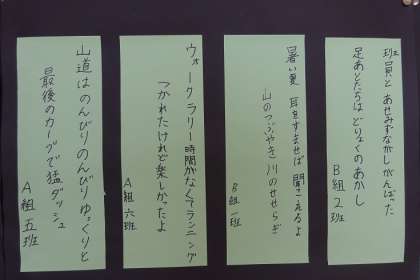 班員と あせみずながしがんばった
足あとたちは どりょくのあかし
B組2班
暑い夏 耳をすませば 聞こえるよ
山のつぶやき 川のせせらぎ
B組一班
ウォークラリー時間がなくてランニング
つかれたけれど楽しかったよ
A組六班
山道はのんびりのんびりゆっくりと
最後のカーブで猛ダッシュ
A組五班